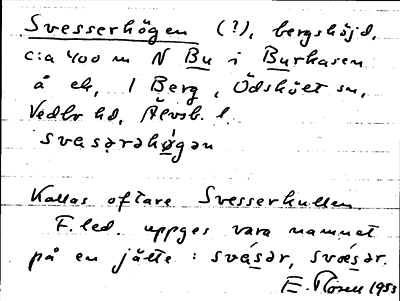 Svesserhögen (?), bergshöjd,
c:a 400 m N Bu i Burhasen
å ek, 1 Berg, Ödsköet sn,
Vedbo hd, Älvsb. l.
svasərəhø̀gən
Kallas oftare Svesserkullen.
F. led. uppges vara namnet
på en jätte : svásər, svǽsər.
E. Florell 1953